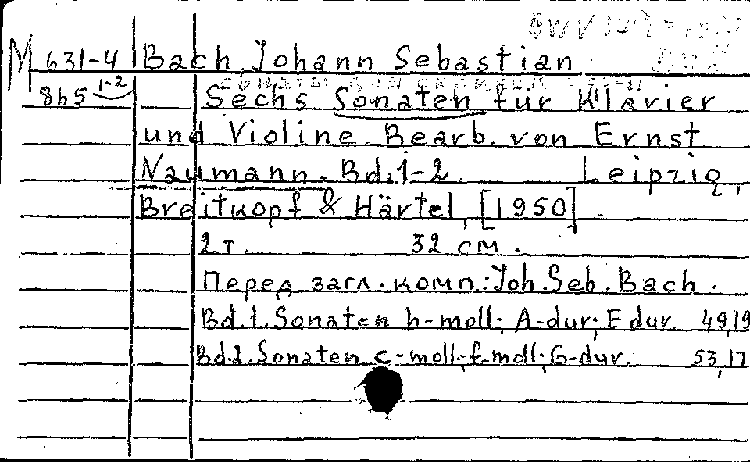 M 631-4 Bach, Johann Sebastian
865 1-2 Sechs Sonaten für Klavier
und Violine. Bearb. von Ernst
Naumann. Bd. 1-2. Leipzig,
Breitkopf & Härtel, [1950].
2 т. 32 см.
Перед загл. комп.: Joh. Seb. Bach.
Bd. 1. Sonaten h-moll; A-dur; E dur. 49, 19
Bd. 2. Sonaten c-moll; f-moll; G-dur. 53, 17